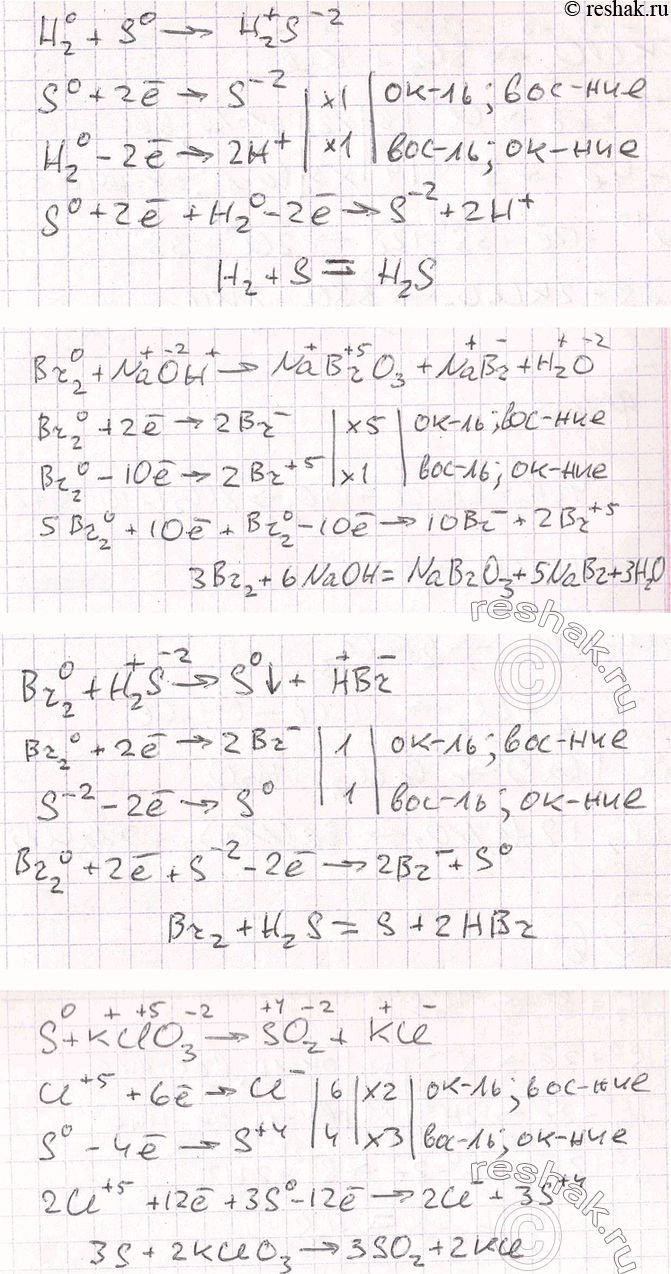 © reshak.ru
H₂⁰ + S⁰ → H₂⁺S⁻²
S⁰ + 2ē → S⁻² | ×1 | ок-ль; вос-ние
H₂⁰ - 2ē → 2H⁺ | ×1 | вос-ль; ок-ние
S⁰ + 2ē + H₂⁰ - 2ē → S⁻² + 2H⁺
H₂ + S = H₂S
Br₂⁰ + Na⁺O⁻²H⁺ → Na⁺Br⁺⁵O₃ + Na⁺Br⁻ + H₂⁺O⁻²
Br₂⁰ + 2ē → 2Br⁻ | ×5 | ок-ль; вос-ние
Br₂⁰ - 10ē → 2Br⁺⁵ | ×1 | вос-ль; ок-ние
5Br₂⁰ + 10ē + Br₂⁰ - 10ē → 10Br⁻ + 2Br⁺⁵
3Br₂ + 6NaOH = NaBrO₃ + 5NaBr + 3H₂O
reshak.ru
©
Br₂⁰ + H₂⁺S⁻² → S⁰↓ + H⁺Br⁻
Br₂⁰ + 2ē → 2Br⁻ | 1 | ок-ль; вос-ние
S⁻² - 2ē → S⁰ | 1 | вос-ль; ок-ние
Br₂⁰ + 2ē + S⁻² - 2ē → 2Br⁻ + S⁰
Br₂ + H₂S = S + 2HBr
S⁰ + K⁺Cl⁺⁵O₃⁻² → S⁺⁴O₂⁻² + K⁺Cl⁻
Cl⁺⁵ + 6ē → Cl⁻ | 6 | ×2 | ок-ль; вос-ние
S⁰ - 4ē → S⁺⁴ | 4 | ×3 | вос-ль; ок-ние
2Cl⁺⁵ + 12ē + 3S⁰ - 12ē → 2Cl⁻ + 3S⁺⁴
3S + 2KClO₃ → 3SO₂ + 2KCl
reshak.ru
©